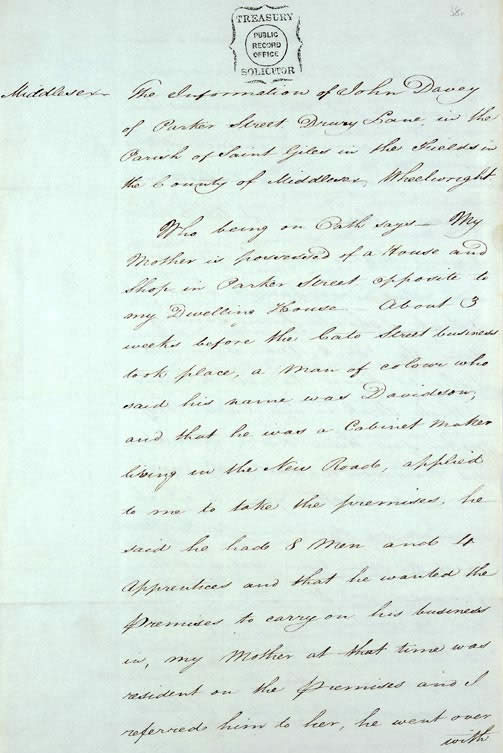 TREASURY
PUBLIC
RECORD
OFFICE
SOLICITOR
Middlesex
The Information of John Davey
of Parker Street Drury Lane in the
Parish of Saint Giles in the Fields in
the County of Middlesex, Wheelwright
Who being on Oath says — My
Mother is possessed of a House and
Shop in Parker Street opposite to
my Dwelling House — About 3
weeks before the Cato Street business
took place, a Man of colour who
said his name was Davidson,
and that he was a Cabinet Maker
living in the New Road, applied
to me to take the premises, he
said he had 8 Men and 4
Apprentices and that he wanted the
Premises to carry on his business
in, my Mother at that time was
resident on the Premises and I
referred him to her, he went over
with